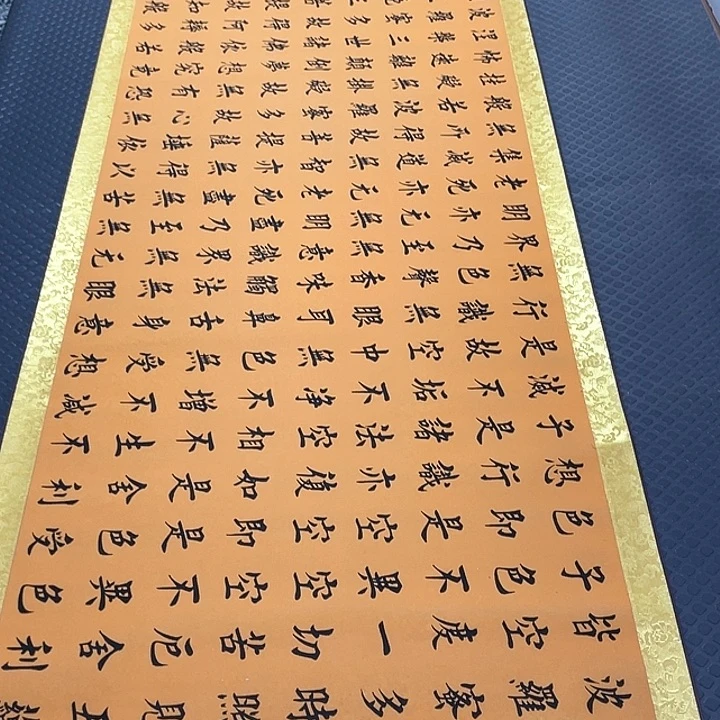 波羅蜜多時照見五蘊
皆空度一切苦厄舍利
子色不異空空不異色
色即是空空即是色受
想行識亦復如是舍利
子是諸法空相不生不
滅不垢不净不增不減
是故空中無色無受想
行識無眼耳鼻舌身意
無色聲香味觸法無眼
界乃至無意識界無无
明亦无無明盡乃至無
老死亦无老死盡無苦
集滅道無智亦無得以
無所得故菩提薩埵依
般若波羅蜜多故心無
挂礙無挂礙故無有恐
怖遠離顛倒夢想究竟
涅槃三世諸佛依般若
波羅蜜多故得阿耨多